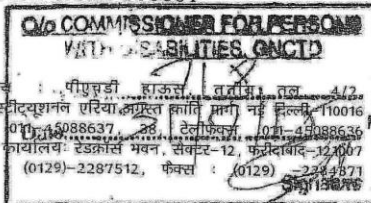 O/o COMMISSIONER FOR PERSONS
WITH DISABILITIES, GNCTD
: पीएचडी हाऊस, तृतीय तल, 4/2
इंस्टीट्यूशनल एरिया अगस्त क्रांति मार्ग नई दिल्ली-110016
011-45088637, 38 टेलीफैक्स : 011-45088636
कार्यालयः रेडक्रॉस भवन, सेक्टर-12, फरीदाबाद-121007
(0129)-2287512, फैक्स : (0129) -2284871